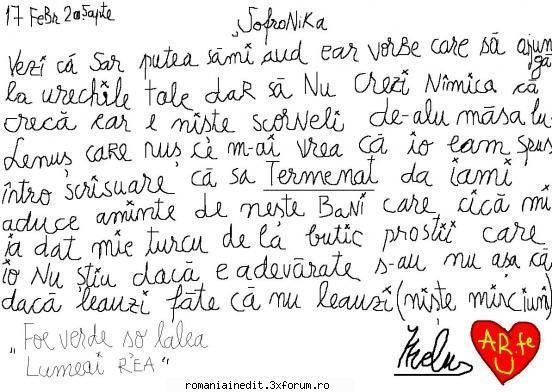 17 FeBR 2005apte
„SofroNiKa
Vezi că Sar putea sămi aud ear vorbe care să ajungă
la urechile tale daR să Nu Crezi Nimica că
crecă ear e niște scorveli de-alu măsa lu-
Lenuș caRe nuș ce m-ai vrea că io eam spus
întro scrisuare că sa Termenat da iami
aduce aminte de nește BaNi care cică mi
ia dat mie turcu de la butic prostii care
io Nu știu dacă e adevărate s-au nu așa că
dacă leauzi făte că nu leauzi (niște misciuni)
„Foe verde so lalea
Lumeai R'EA"
A R fe
U
romaniainedit.3xforum.ro